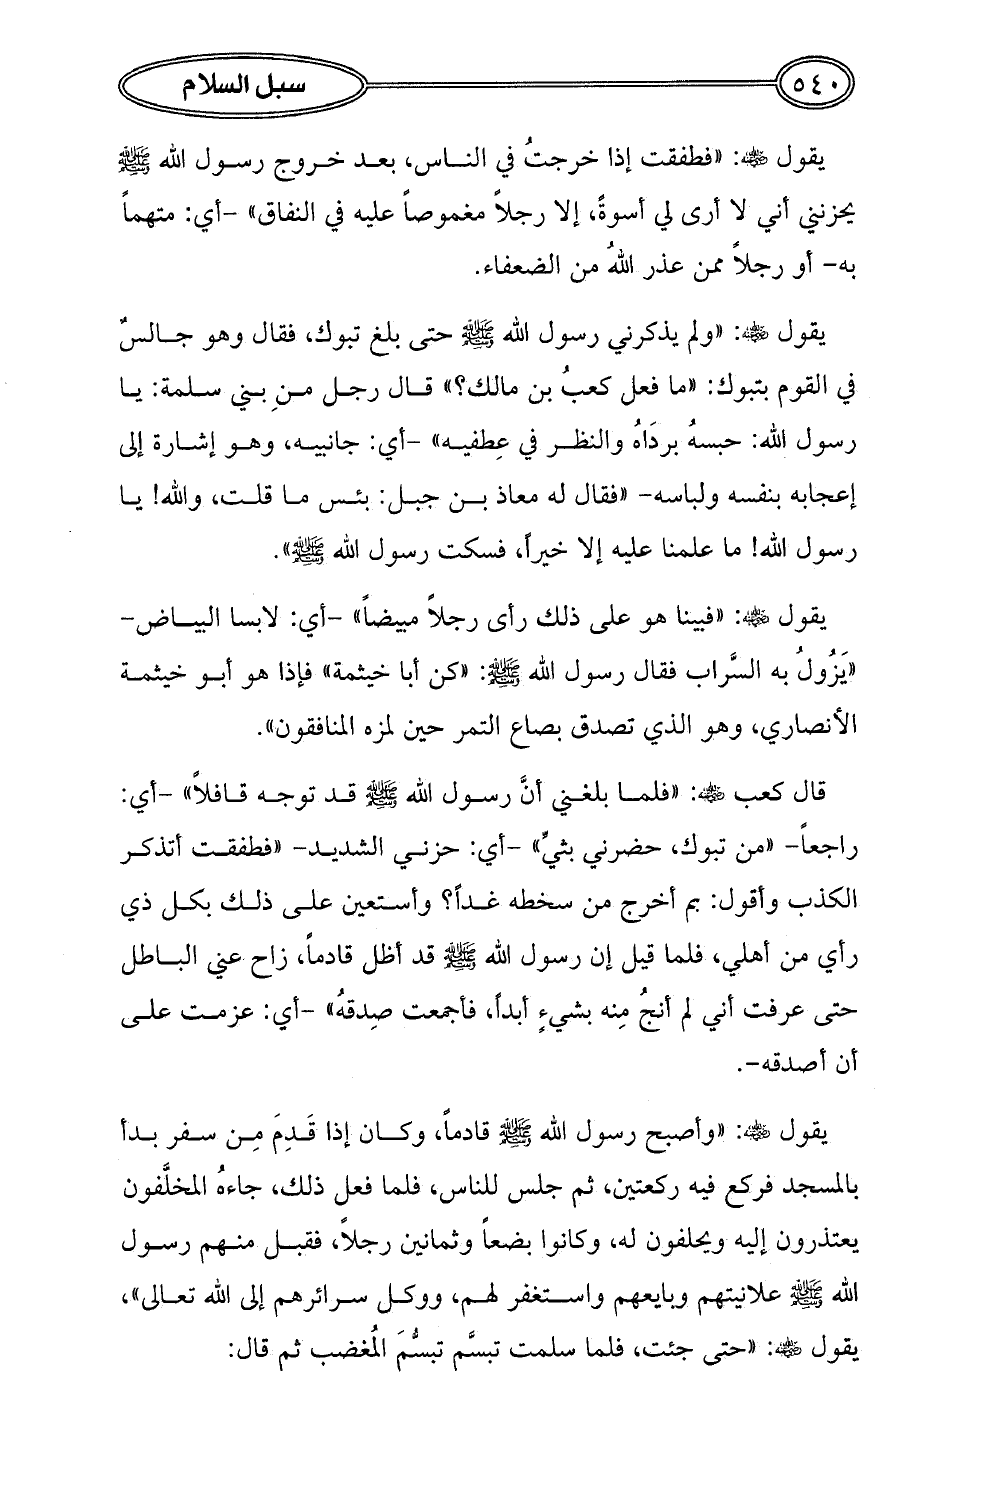 ٥٤٠
سبل السلام
يقول ﷺ: «فطفقت إذا خرجتُ في الناس، بعد خروج رسول الله ﷺ
يحزنني أني لا أرى لي أسوةً، إلا رجلاً مغموصاً عليه في النفاق» -أي: متهماً
به- أو رجلاً ممن عذر اللهُ من الضعفاء.
يقول ﷺ: «ولم يذكرني رسول الله ﷺ حتى بلغ تبوك، فقال وهو جالسٌ
في القوم بتبوك: «ما فعل كعبُ بن مالك؟» قال رجل منِ بني سلمة: يا
رسول الله: حبسهُ بردَاهُ والنظر في عِطفيه» -أي: جانبيه، وهو إشارة إلى
إعجابه بنفسه ولباسه- «فقال له معاذ بن جبل: بئس ما قلت، والله! يا
رسول الله! ما علمنا عليه إلا خيراً، فسكت رسول الله ﷺ».
يقول ﷺ: «فبينا هو على ذلك رأى رجلاً مبيضاً» -أي: لابسا البياض-
«يَزُولُ به السَّراب فقال رسول الله ﷺ: «كن أبا خيثمة» فإذا هو أبو خيثمة
الأنصاري، وهو الذي تصدق بصاع التمر حين لمزه المنافقون».
قال كعب ﷺ: «فلما بلغني أنَّ رسول الله ﷺ قد توجه قافلاً» -أي:
راجعاً- «من تبوك، حضرني بثيِّ» -أي: حزني الشديد- «فطفقت أتذكر
الكذب وأقول: بم أخرج من سخطه غداً؟ وأستعين على ذلك بكل ذي
رأي من أهلي، فلما قيل إن رسول الله ﷺ قد أظل قادماً، زاح عني الباطل
حتى عرفت أني لم أنجُ مِنه بشيءٍ أبداً، فأجمعت صِدقهُ» -أي: عزمت على
أن أصدقه-.
يقول ﷺ: «وأصبح رسول الله ﷺ قادماً، وكان إذا قَدِمَ مِن سفر بدأ
بالمسجد فركع فيه ركعتين، ثم جلس للناس، فلما فعل ذلك، جاءهُ المخلَّفون
يعتذرون إليه ويحلفون له، وكانوا بضعاً وثمانين رجلاً، فقبل منهم رسول
الله ﷺ علانيتهم وبايعهم واستغفر لهم، ووكل سرائرهم إلى الله تعالى»،
يقول ﷺ: «حتى جئت، فلما سلمت تبسَّم تبسُّمَ المُغضب ثم قال: